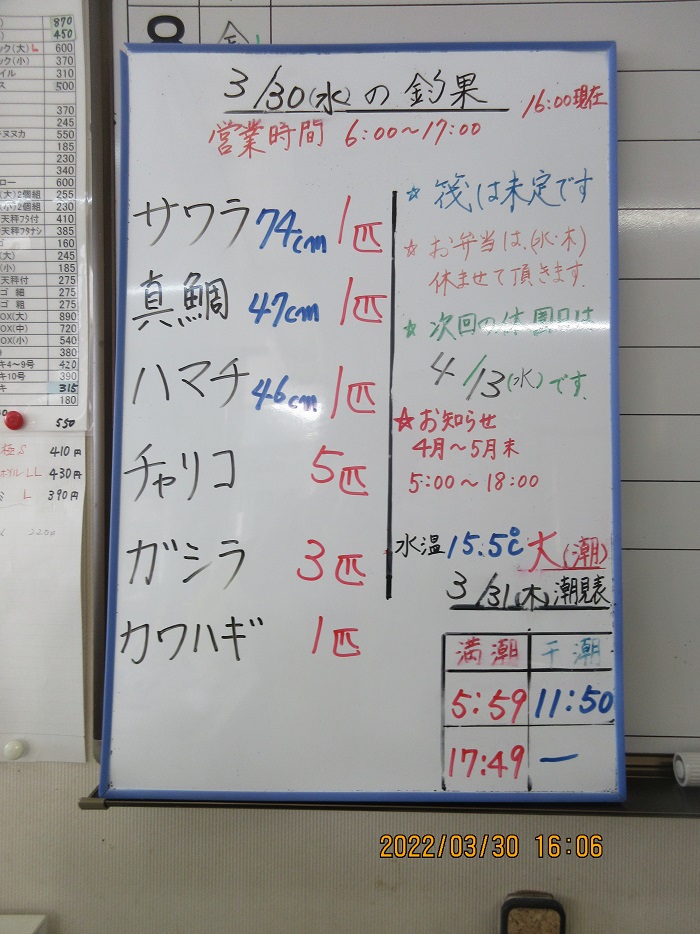 870
450
ック(大) L 600
ック(小) 370
イル 310
ス 500
370
245
キヌヌカ 550
185
230
340
ロー 600
(大)2個組 255
(小)2個組 230
天秤フタ付 410
天秤フタナシ 385
ゴ 160
(大) 245
(小) 185
天秤付 275
ゴ 細 275
ゴ 粗 275
OX(大) 890
OX(中) 720
OX(小) 540
380
キ4～9号 420
キ10号 390
キ 315
180
550
極S 410円
LL 430円
ミ L 390円
8
3/30(水)の釣果
16:00現在
営業時間 6:00～17:00
サワラ 74cm 1匹
真鯛 47cm 1匹
ハマチ 46cm 1匹
チャリコ 5匹
ガシラ 3匹
カワハギ 1匹
☆ 筏は未定です
☆ お弁当は、(水・木)
休ませて頂きます.
☆ 次回の休園日は
4/13(水)です.
☆お知らせ
4月～5月末
5:00～18:00
水温 15.5℃ 大(潮)
3/31(木)潮見表
満潮 干潮
5:59 11:50
17:49 ー
2022/03/30 16:06